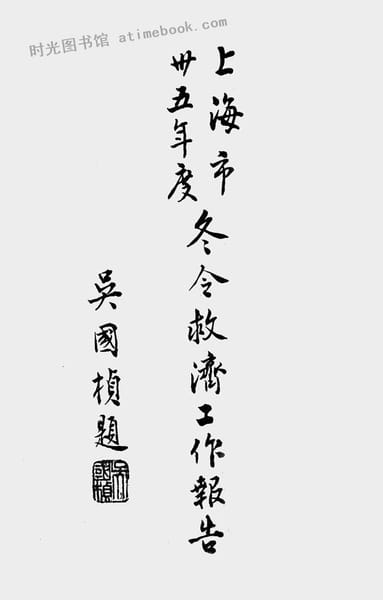 时光图书馆 atimebook.com
上海市
卅五年度
冬令救濟工作報告
吳國楨題
吳國楨